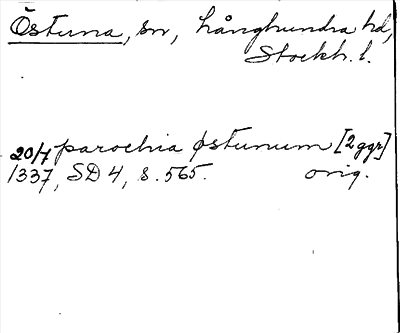 Östuna, sn, Långhundra hd,
Stockh. l.
20/7 parochia østunum [2 ggr]
1337, SD 4, s. 565. orig.